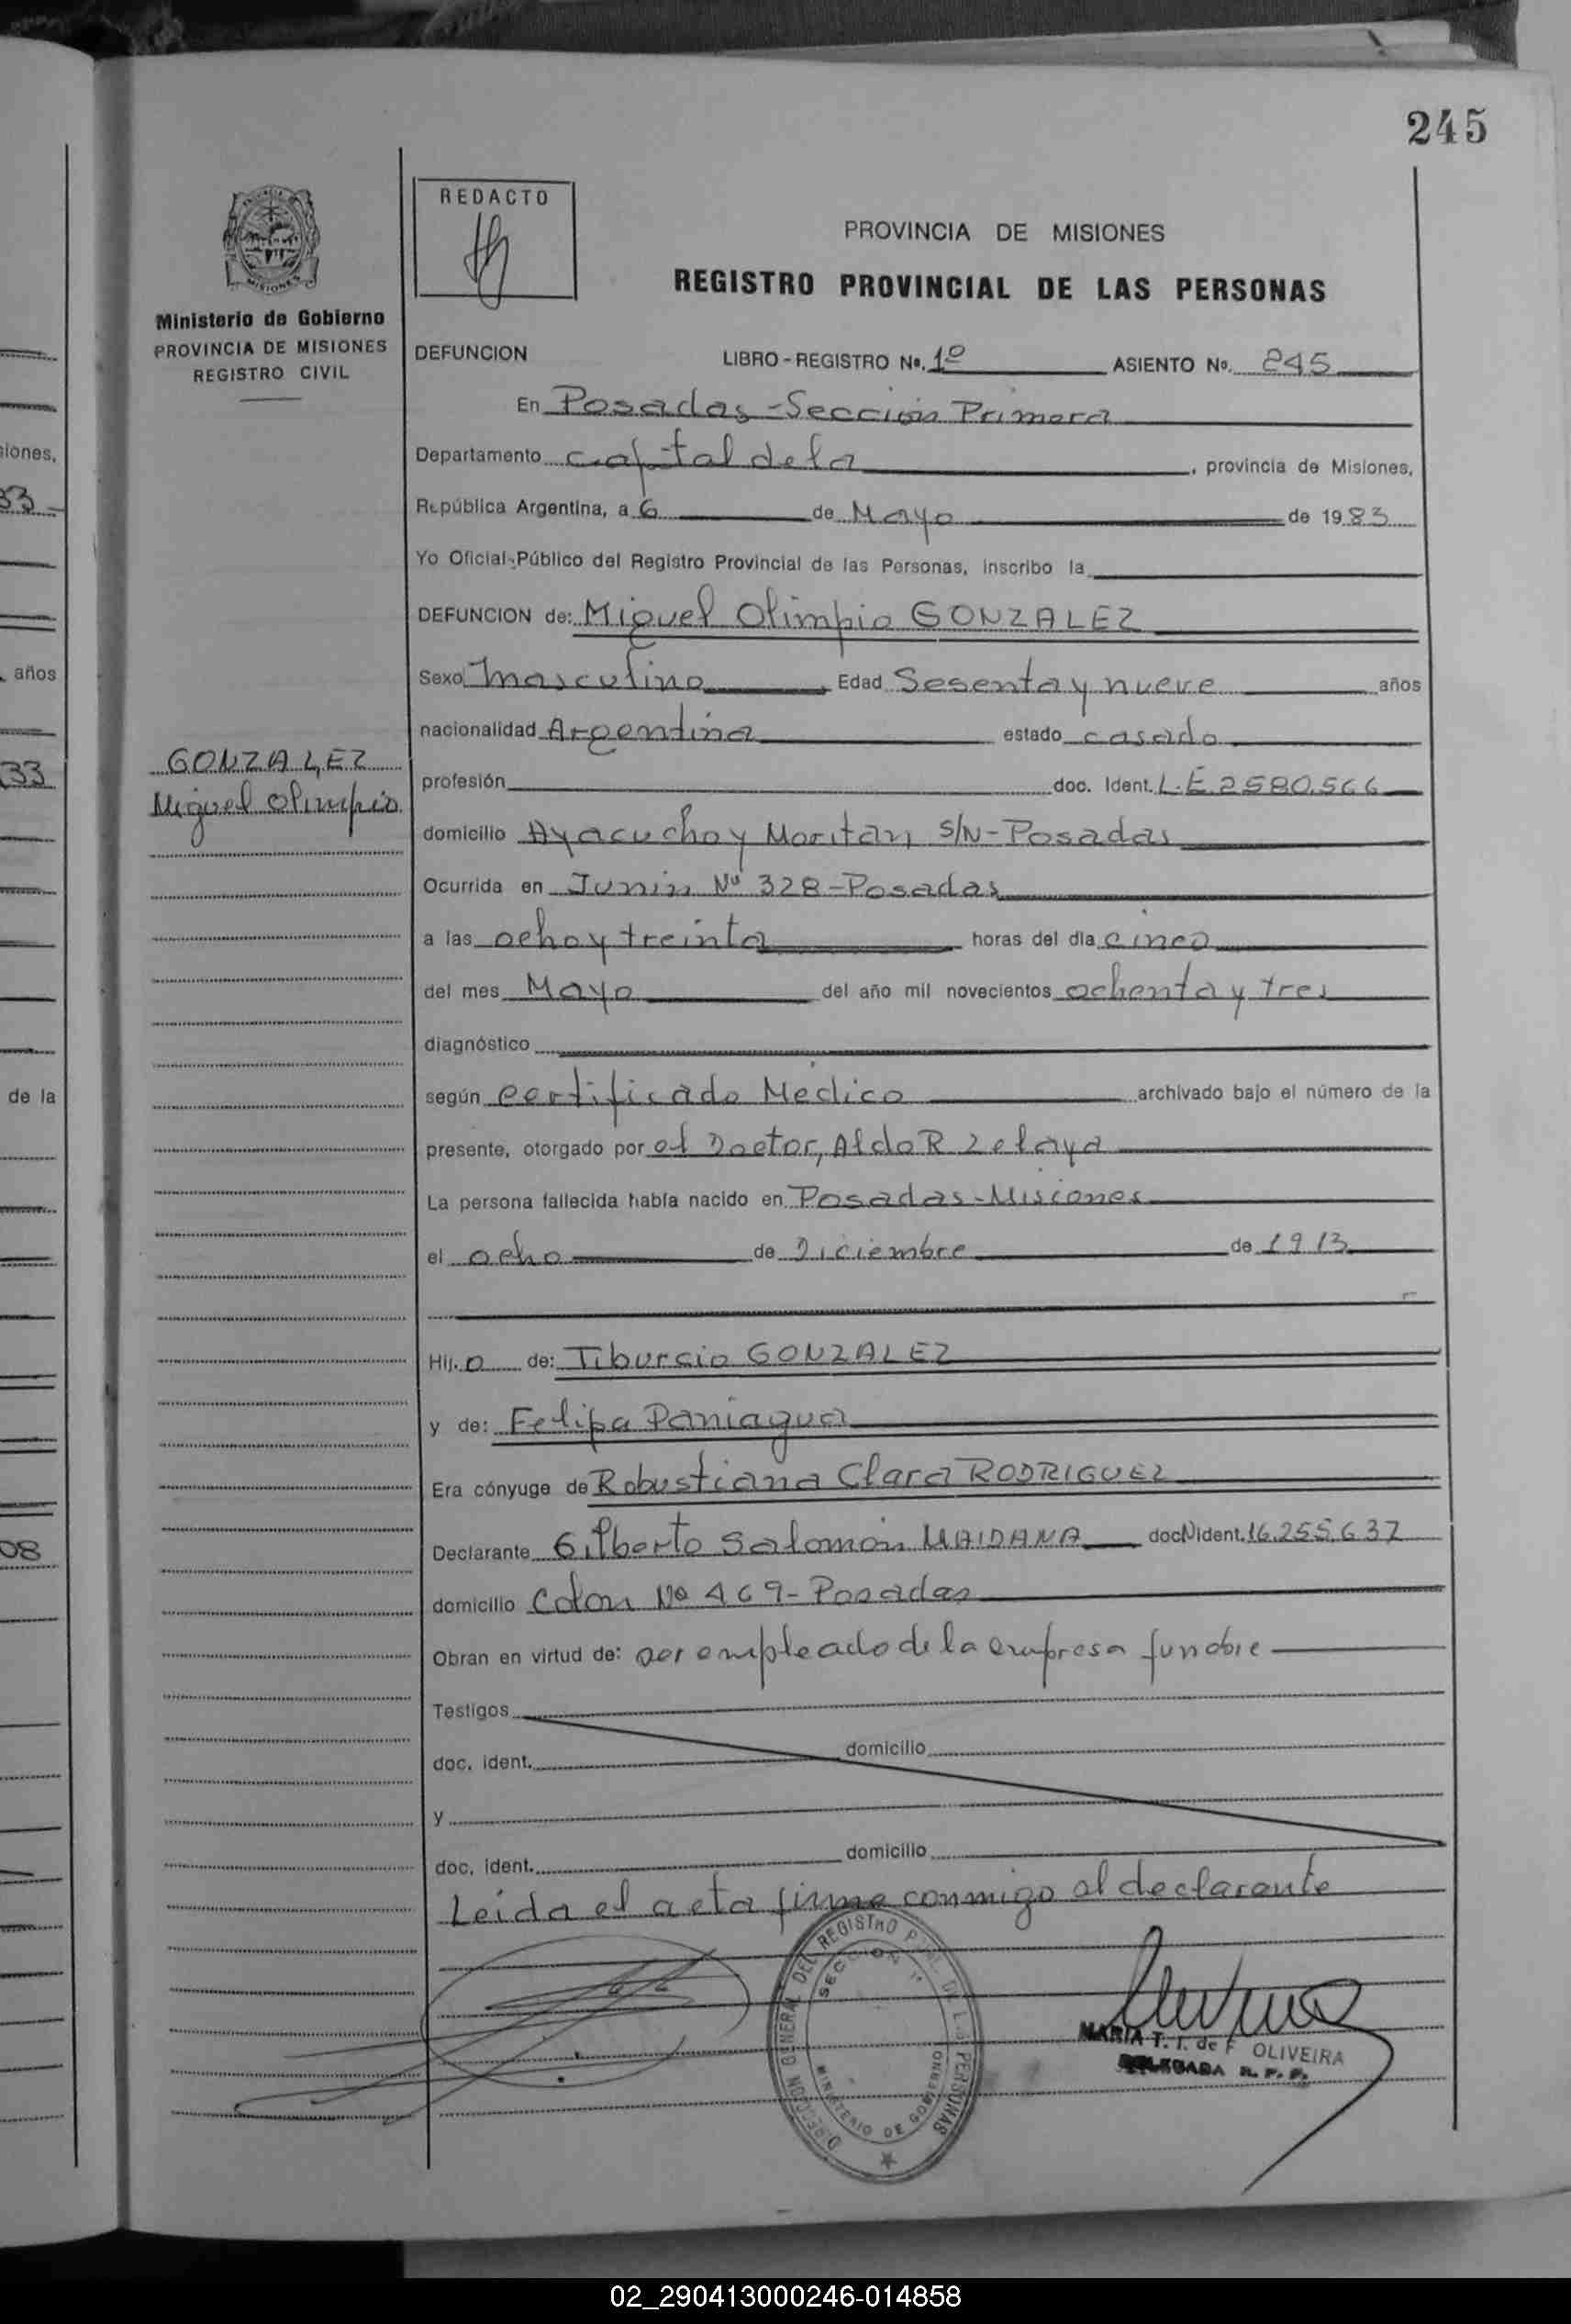 245
REDACTO
PROVINCIA DE MISIONES
REGISTRO PROVINCIAL DE LAS PERSONAS
MISIONES
Ministerio de Gobierno
PROVINCIA DE MISIONES
REGISTRO CIVIL
DEFUNCION LIBRO - REGISTRO No. 1º ASIENTO No. 245
En Posadas - Sección Primera
Departamento capital de la, provincia de Misiones,
República Argentina, a 6 de Mayo de 1983
Yo Oficial Público del Registro Provincial de las Personas, inscribo la
DEFUNCION de: Miguel Olimpio GONZALEZ
Sexo masculino, Edad Sesenta y nueve años
nacionalidad Argentina estado casado
GONZALEZ
Miguel Olimpio
profesión doc. Ident. L.E. 2580.566
domicilio Ayacucho y Moritan S/N - Posadas
Ocurrida en Junin Nº 328 - Posadas
a las ocho y treinta horas del día cinco
del mes Mayo del año mil novecientos ochenta y tres
diagnóstico
según certificado Medico archivado bajo el número de la
presente, otorgado por el Doctor, Aldo R Zelaya
La persona fallecida había nacido en Posadas - Misiones
el ocho de Diciembre de 1913
Hij.o de: Tiburcio GONZALEZ
y de: Felipa Paniagua
Era cónyuge de Robustiana Clara RODRIGUEZ
Declarante Gilberto Salomón MAIDANA doc.N ident. 16.255.637
domicilio Colon Nº 469 - Posadas
Obran en virtud de: ser empleado de la empresa funebre
Testigos
doc. ident. domicilio
y
doc. ident. domicilio
Leída el acta firma conmigo el declarante
DIRECCION GENERAL DEL REGISTRO P. DE LAS PERSONAS
SECCION 1ª
MINISTERIO DE GOBIERNO
MARIA T. I. de F OLIVEIRA
DELEGADA R. P. P.
siones,
33
años
33
de la
08
02_290413000246-014858